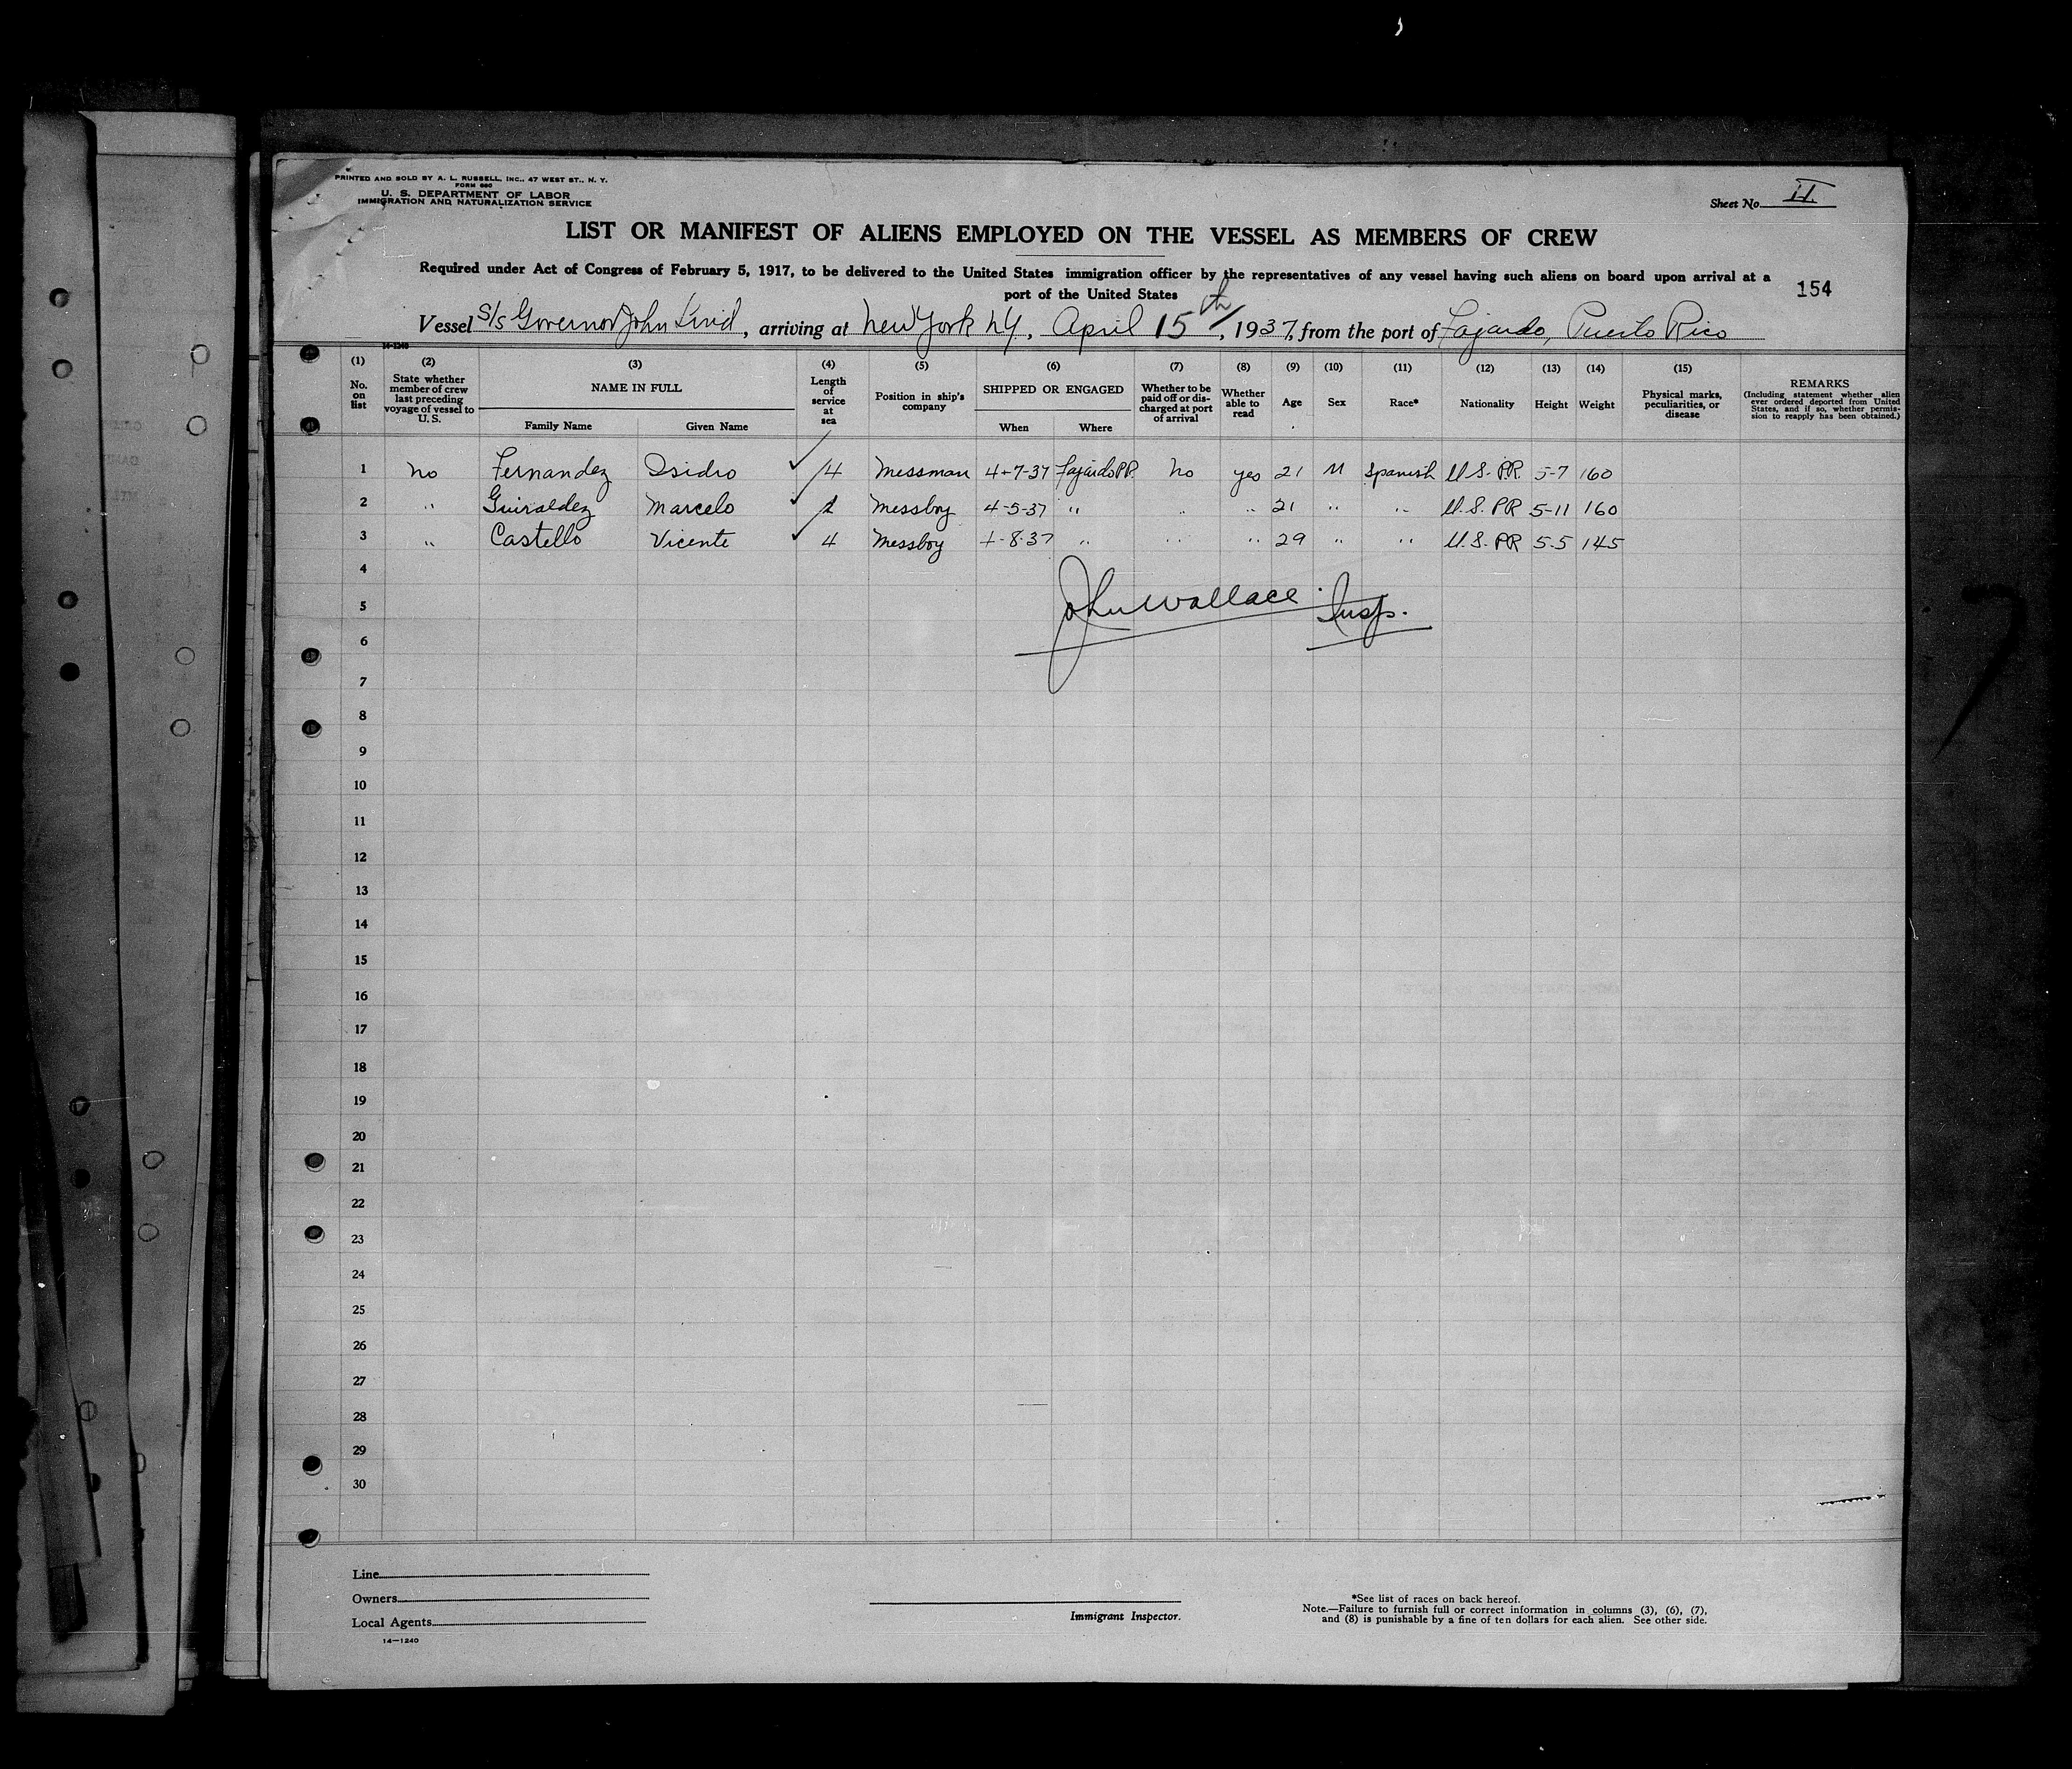 PRINTED AND SOLD BY A. L. RUSSELL, INC., 47 WEST ST., N. Y.
FORM 680
U. S. DEPARTMENT OF LABOR
IMMIGRATION AND NATURALIZATION SERVICE
Sheet No. II
LIST OR MANIFEST OF ALIENS EMPLOYED ON THE VESSEL AS MEMBERS OF CREW
Required under Act of Congress of February 5, 1917, to be delivered to the United States immigration officer by the representatives of any vessel having such aliens on board upon arrival at a
port of the United States
154
Vessel S/s Governor John Lind, arriving at New York NY, April 15th, 1937, from the port of Fajardo, Puerto Rico
14-1240
(1) No. on list
(2) State whether member of crew last preceding voyage of vessel to U. S.
(3) NAME IN FULL
Family Name
Given Name
(4) Length of service at sea
(5) Position in ship's company
(6) SHIPPED OR ENGAGED
When
Where
(7) Whether to be paid off or discharged at port of arrival
(8) Whether able to read
(9) Age
(10) Sex
(11) Race*
(12) Nationality
(13) Height
(14) Weight
(15) Physical marks, peculiarities, or disease
REMARKS
(Including statement whether alien ever ordered deported from United States, and if so, whether permission to reapply has been obtained.)
1 No Fernandez Isidro ✓ 4 Messman 4-7-37 Fajardo P.R. No yes 21 M Spanish U.S. P.R. 5-7 160
2 " Guiraldez Marcelo ✓ Messboy 4-5-37 " " " 21 " " U.S. PR 5-11 160
3 " Castello Vicente ✓ 4 Messboy 4-8-37 " " " 29 " " U.S. PR 5-5 145
John Wallace Insp.
4
5
6
7
8
9
10
11
12
13
14
15
16
17
18
19
20
21
22
23
24
25
26
27
28
29
30
Line
Owners
Local Agents
14—1240
Immigrant Inspector.
*See list of races on back hereof.
Note.—Failure to furnish full or correct information in columns (3), (6), (7),
and (8) is punishable by a fine of ten dollars for each alien. See other side.